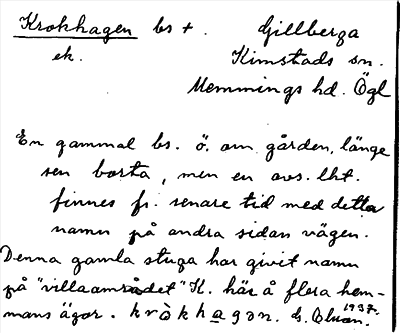 Krokhagen bs +. Gillberga
ek. Kimstads sn.
Memmings hd. Ögl
En gammal bs. ö. om gården, länge
sen borta, men en avs. lht.
finnes fr. senare tid med detta
namn på andra sidan vägen.
Denna gamla stuga har givit namn
på "villaområdet" K. här å flera hem-
mans ägor. kròkhagən. G. Olson. 1937.